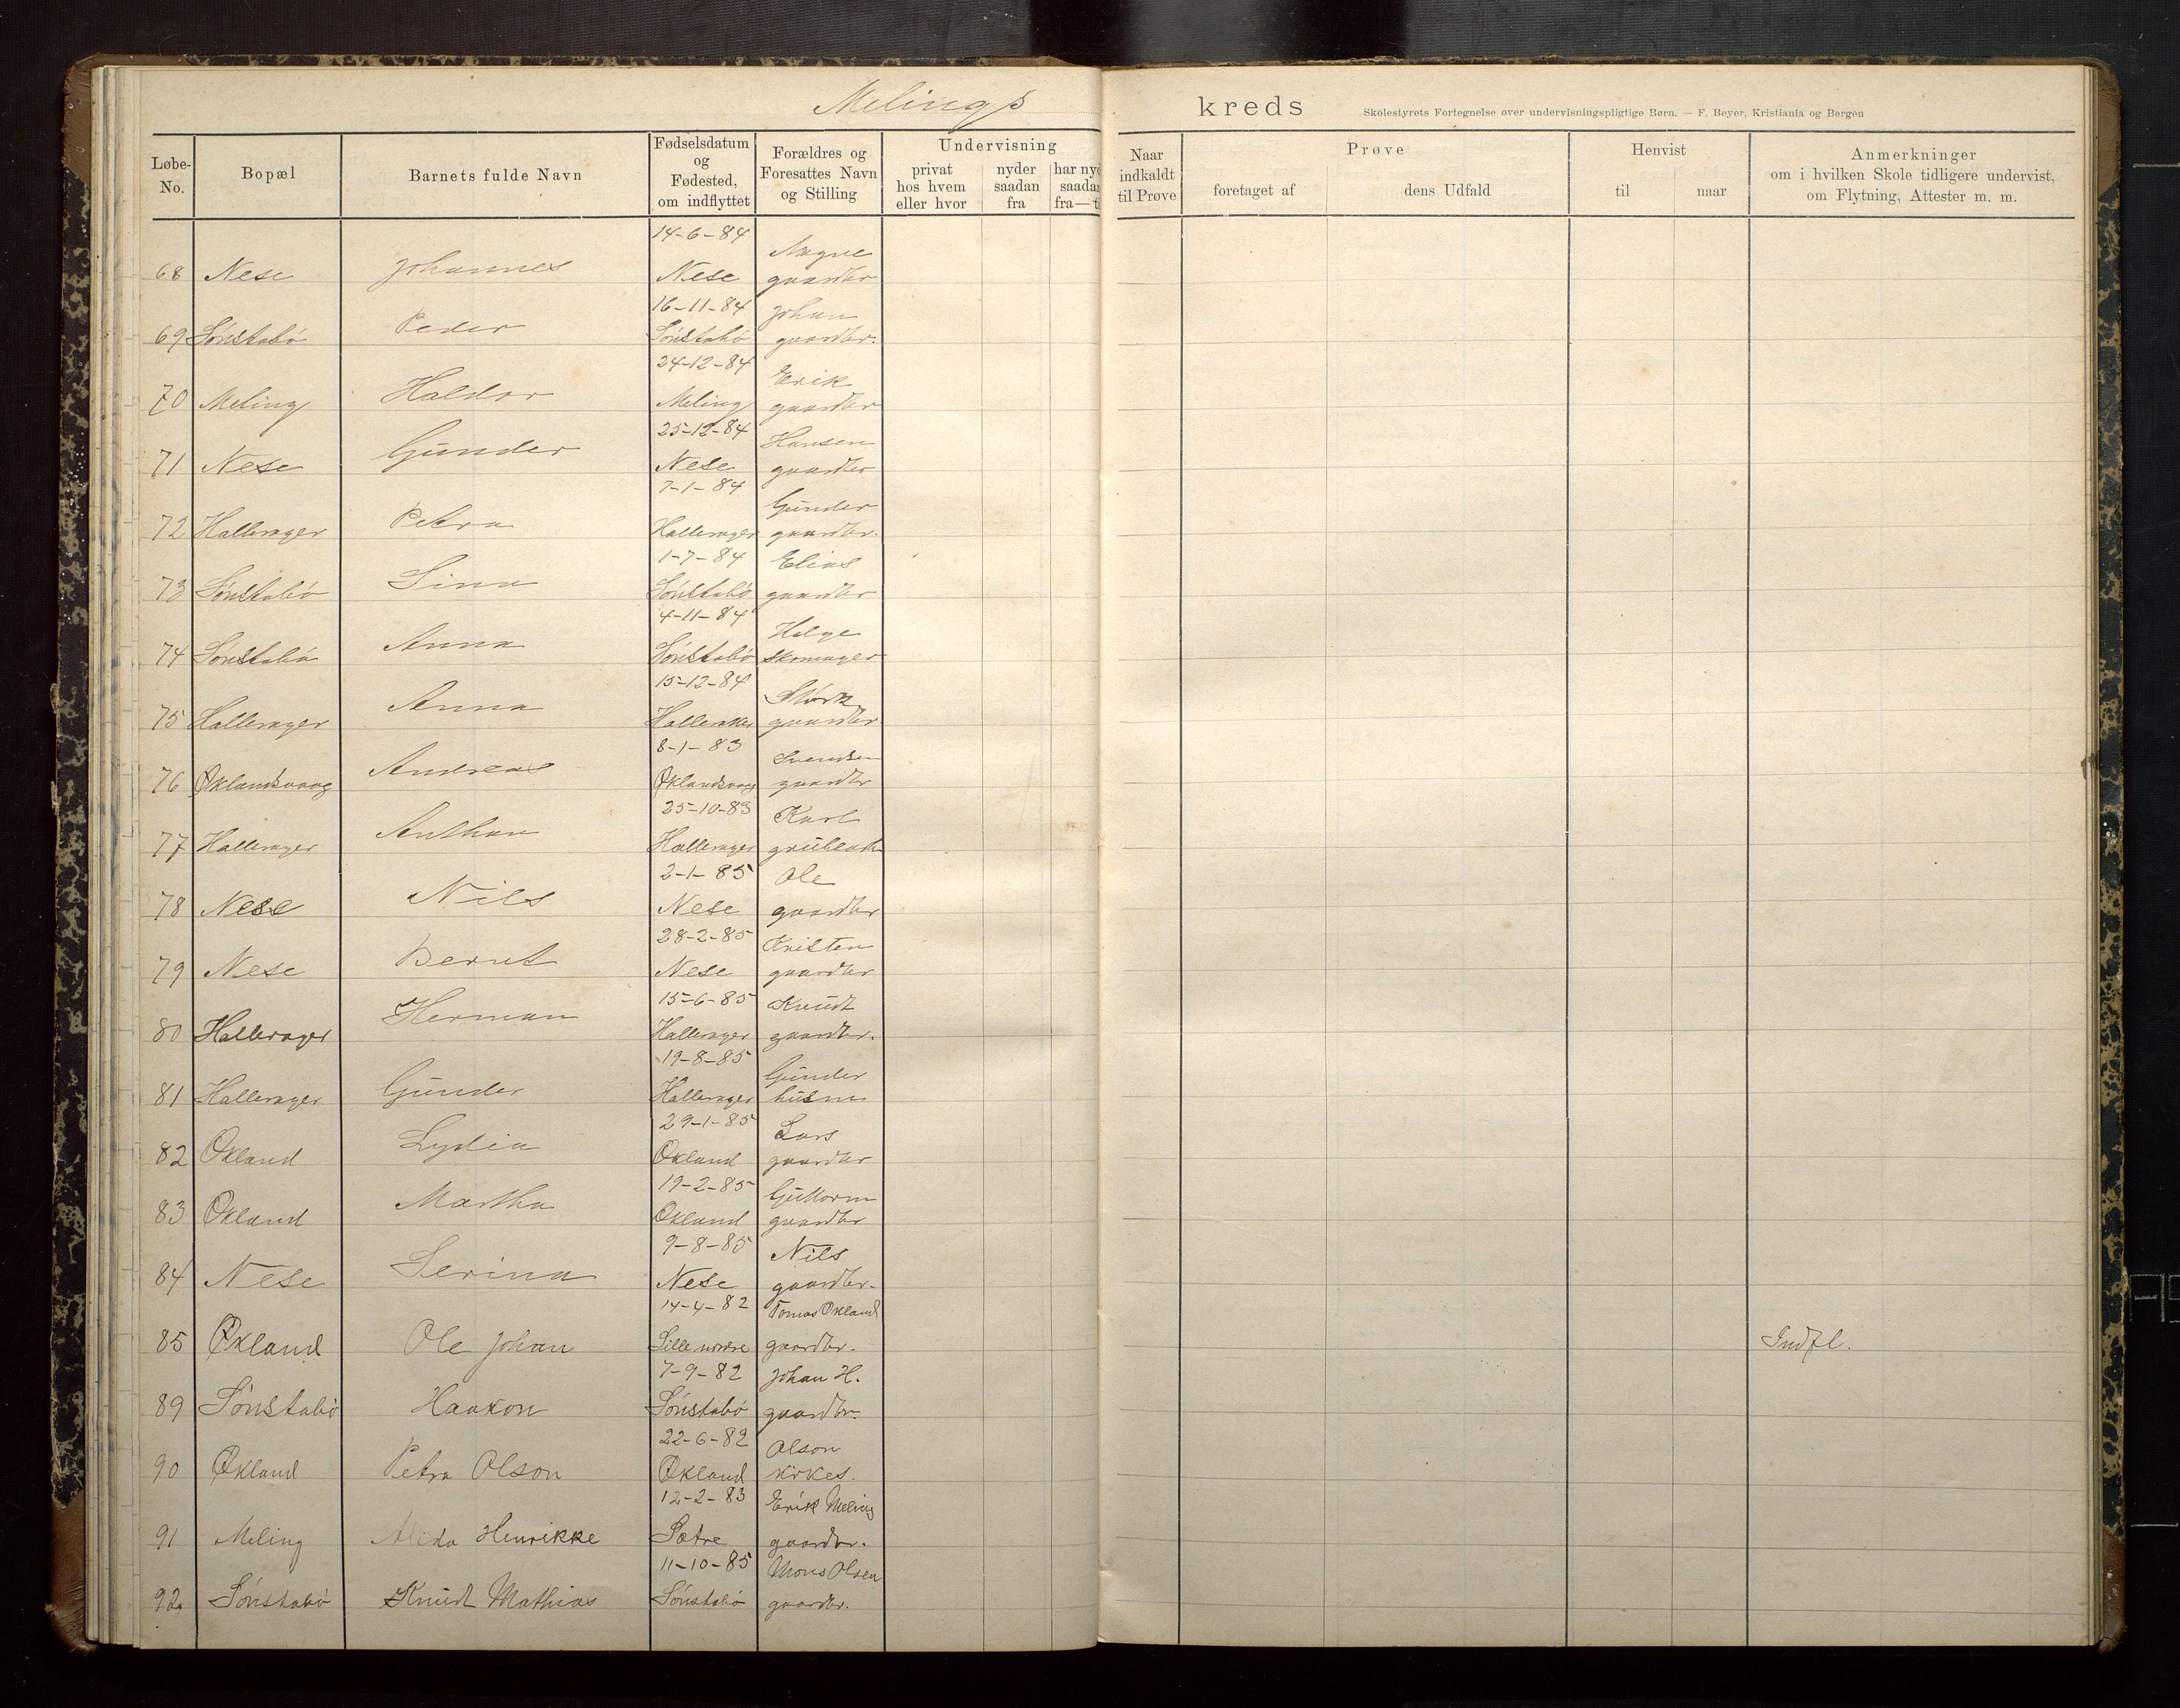 Melings kreds
Skolestyrets Fortegnelse over undervisningspligtige Børn. — F. Beyer, Kristiania og Bergen
Løbe-No. Bopæl Barnets fulde Navn Fødselsdatum og Fødested, om indflyttet Forældres og Foresattes Navn og Stilling Undervisning privat hos hvem eller hvor nyder saadan fra har nyd saadan fra — t Naar indkaldt til Prøve Prøve foretaget af dens Udfald Henvist til naar Anmerkninger om i hvilken Skole tidligere undervist, om Flytning, Attester m. m.
14-6-84 Magne
68 Nese Johannes Nese gaardbr
16-11-84 Johan
69 Sønstabø Peder Sønstabø gaardbr.
24-12-84 Erik
70 Meling Haldor Meling gaardbr
25-12-84 Hansen
71 Nese Gunder Nese gaardbr
7-1-84 Gunder
72 Hallerager Petra Hallerager gaardbr.
1-7-84 Elias
73 Sønstabø Sina Sønstabø gaardbr
4-11-84 Helge
74 Sønstabø Anna Sønstabø Skomager
15-12-84 Størk
75 Hallerager Anna Halleraker gaardbr
8-1-83 Svendsen
76 Øklandsvaag Andreas Øklandsvaag gaardbr
25-10-83 Karl
77 Hallerager Anthon Hallerager
2-1-85 Ole
78 Nese Nils Nese gaardbr
28-2-85 Kristen
79 Nese Bernt Nese gaardbr
15-6-85 Knudt
80 Hallerager Herman Hallerager gaardbr.
19-8-85 Gunder
81 Hallerager Gunder Hallerager husm
29-1-85 Lars
82 Økland Lydia Økland gaardbr
19-2-85 Guttorm
83 Økland Martha Økland gaardbr
9-8-85 Nils
84 Nese Serina Nese gaardbr.
14-4-82 Tomas Økland
85 Økland Ole Johan Lille nordre gaardbr. Indfl.
7-9-82 Johan H.
89 Sønstabø Haakon Sønstabø gaardbr.
22-6-82 Olson
90 Økland Petra Olson Økland kirkes.
12-2-83 Erik Meling
91 Meling Alida Henrikke Sætre gaardbr.
11-10-85 Mons Olsen
92 Sønstabø Knudt Mathias Sønstabø gaardbr.